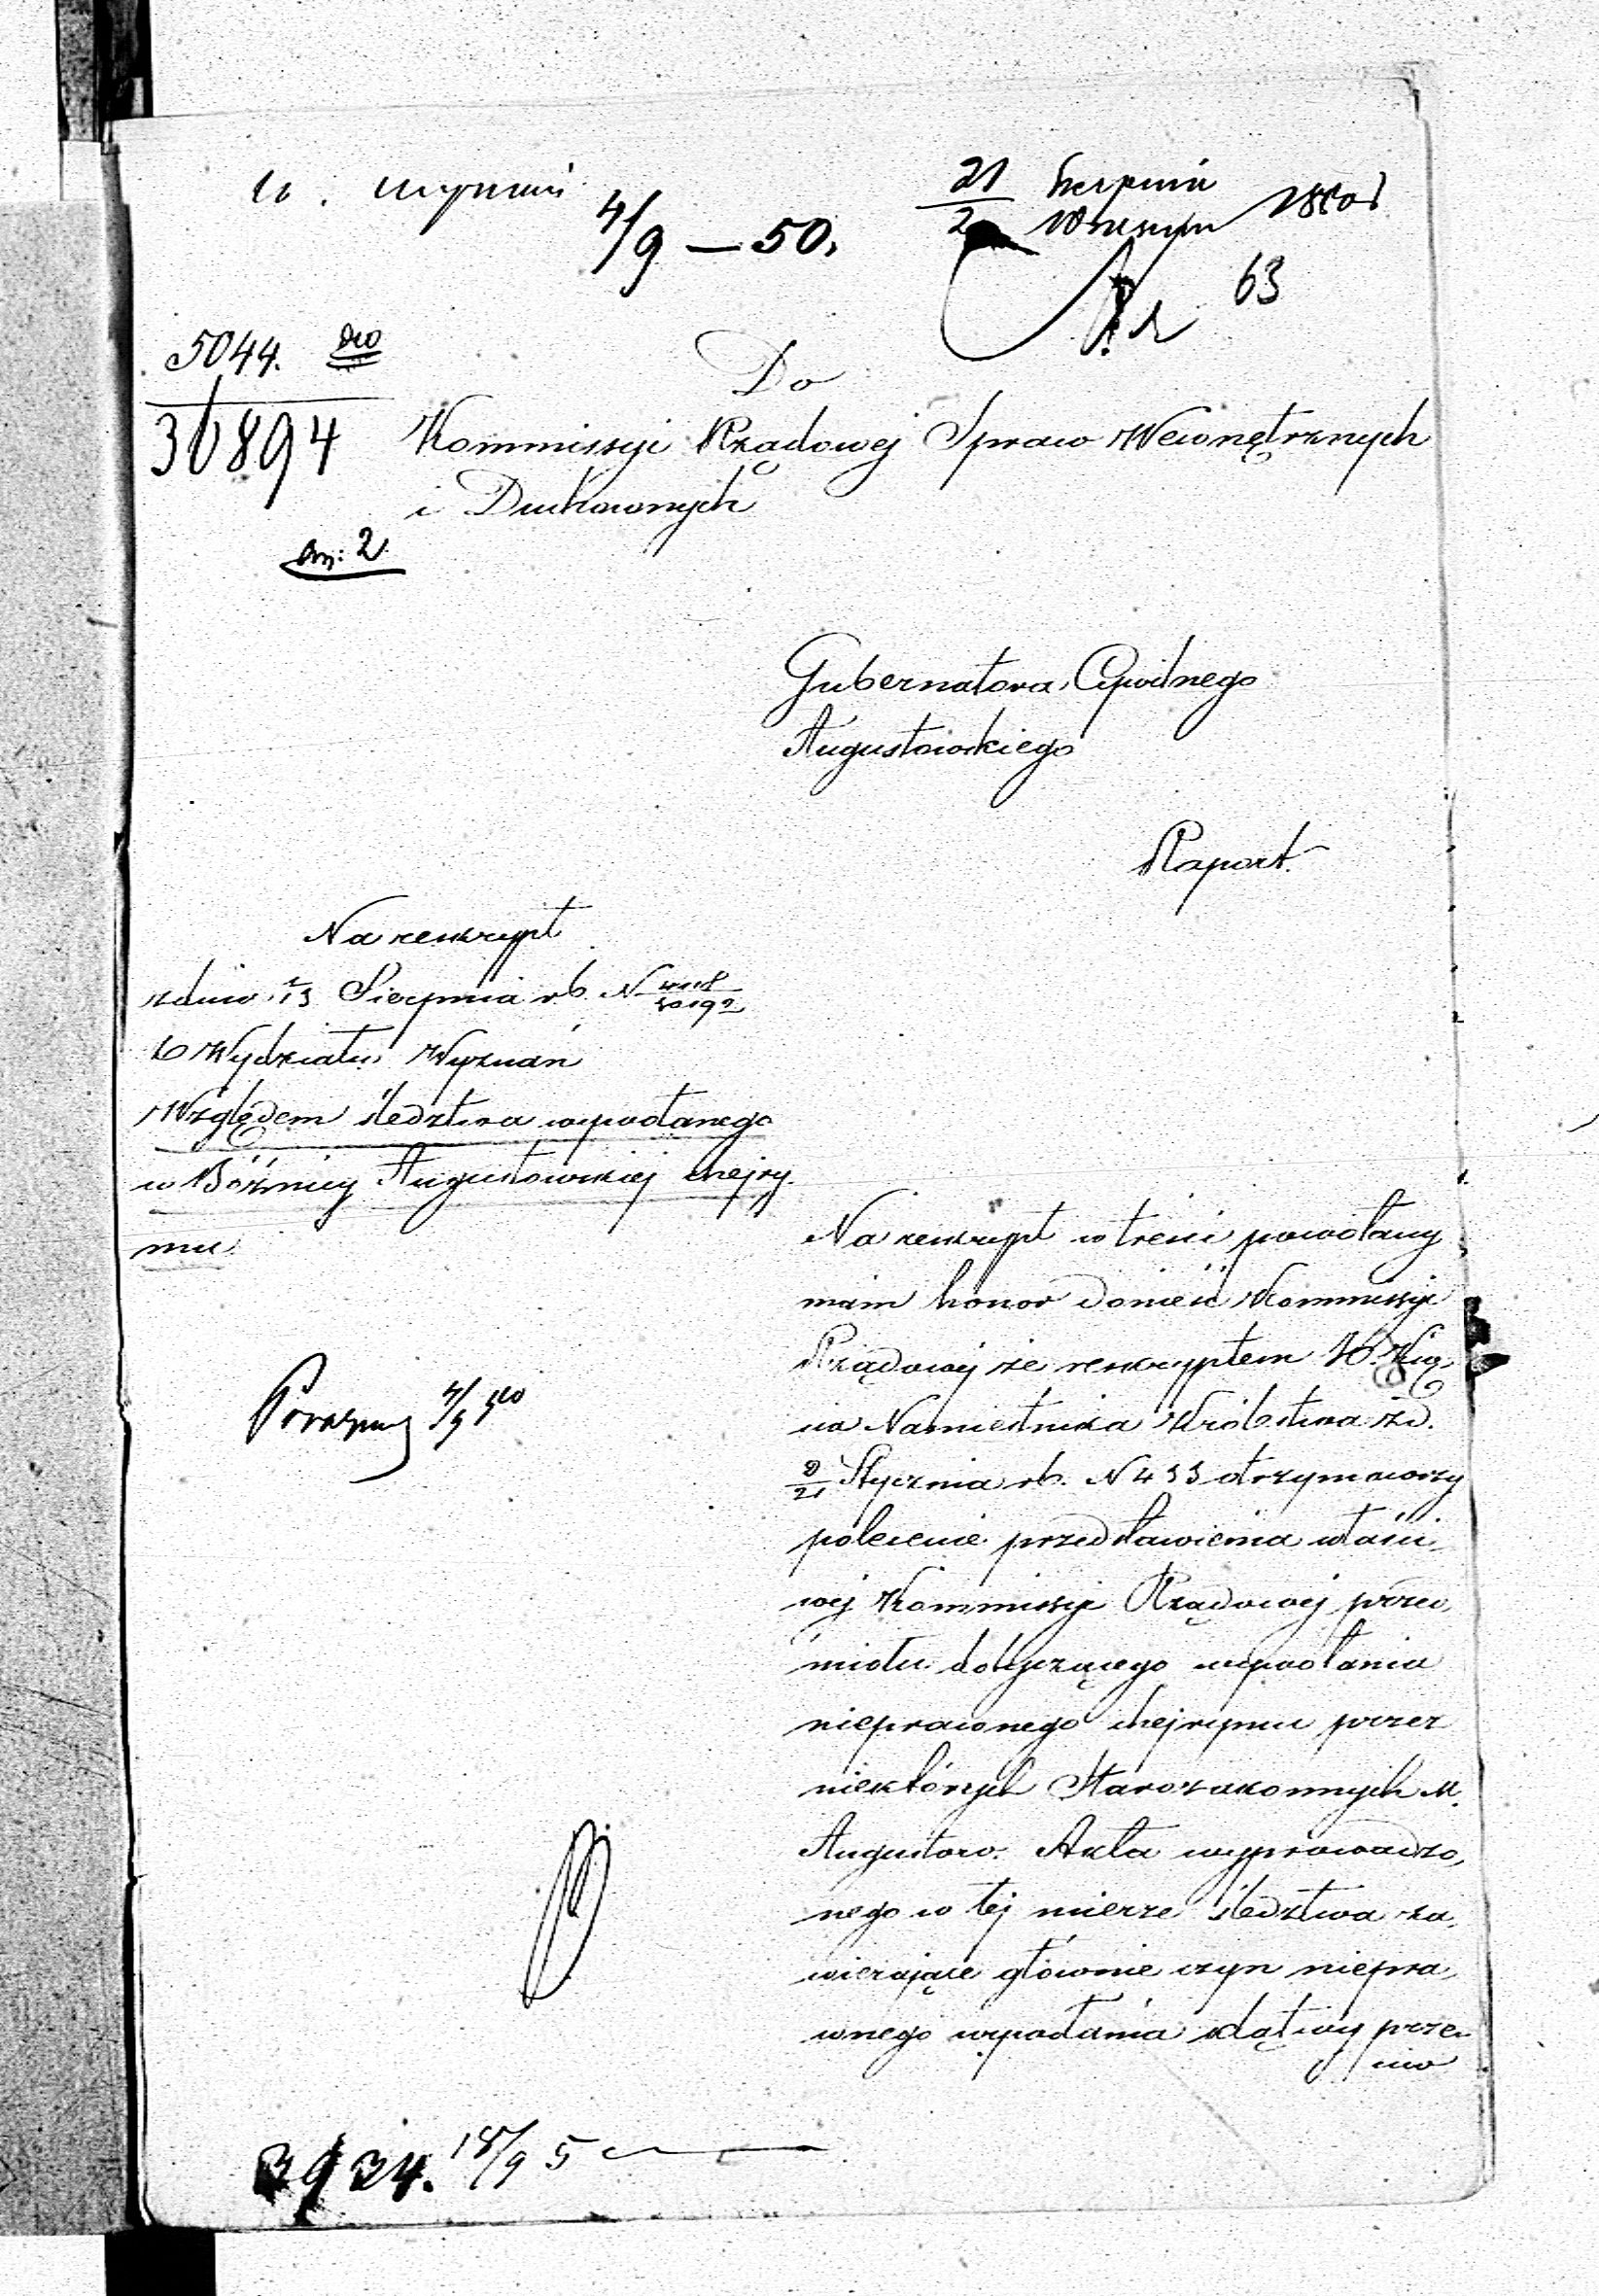 W. Wyznań
4/9 – 50.
21 Sierpnia
2 Września 1850 r
63
5044.
36894
Do
Kommissyi Rządowej Spraw Wewnętrznych
i Duchownych
an: 2
Gubernatora Cywilnego
Augustowskiego
Raport.
Na reskrypt
z dnia 1/13 Sierpnia rb. N
Wydziału Wyznań
Względem śledztwa wywołanego
w Bóżnicy Augustowskiej chejry-
mu
Na reskrypt w treści powołany
mam honor donieść Kommissyi
Rządowej że reskryptem JO. Xię-
cia Namiestnika Królestwa z d.
9/21 Stycznia rb. N 433 otrzymawszy
polecenie przedstawienia właści-
wej Kommissyi Rządowej przed-
miotu dotyczącego wywołania
nieprawnego chejrymu przez
niektórych Starozakonnych M.
Augustow. Akta wyprowadzo-
nego w tej mierze śledztwa za-
wierające głównie czyn niepra-
wnego wywołania klątwy prze-
ciw
3934. 18/9 5